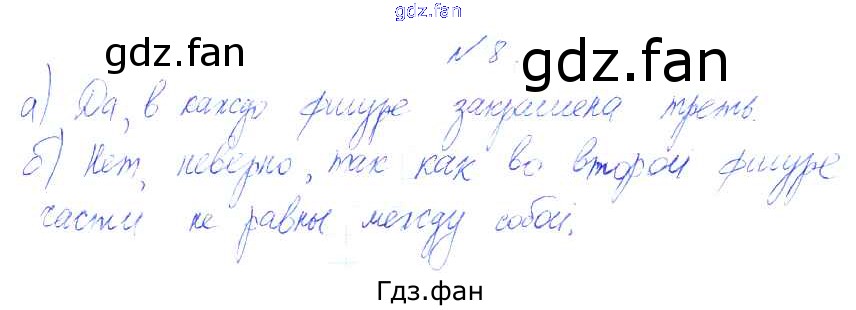 gdz.fan
gdz.fan
№ 8.
gdz.fan
а) Да, в каждо фигуре закрашена треть.
б) Нет, неверно, так как во второй фигуре
части не равны между собой.
Гдз.фан